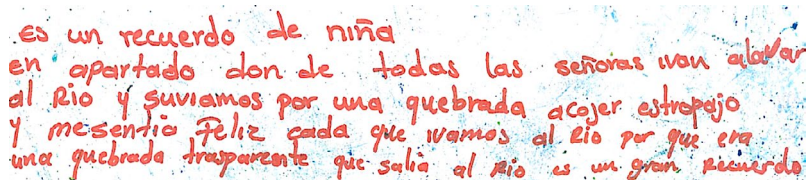 es un recuerdo de niña
en apartado don de todas las señoras ivan alavar
al Rio y suviamos por una quebrada acojer estropajo
y mesentia Feliz cada que ivamos al Rio por que era
una quebrada trasparente que salia al Rio es un gran Recuerdo